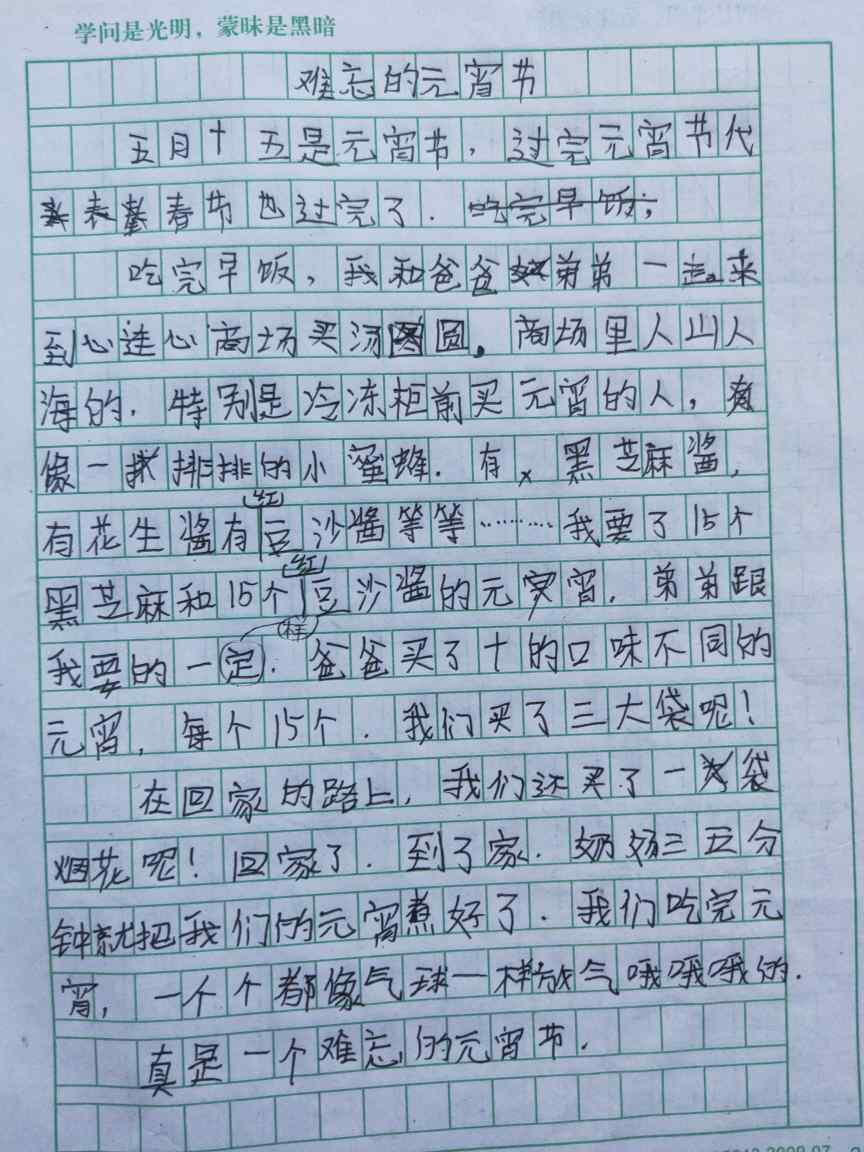 学问是光明，蒙昧是黑暗
难忘的元宵节
五月十五是元宵节，过完元宵节代
表春节也过完了．吃完早饭，
吃完早饭，我和爸爸弟弟一起来
到心连心商场买汤圆。商场里人山人
海的．特别是冷冻柜前买元宵的人，
像一排排的小蜜蜂．有黑芝麻酱，
有花生酱有红豆沙酱等等………我要了15个
黑芝麻和15个红豆沙酱的元宵．弟弟跟
我要的一样．爸爸买了十的口味不同的
元宵，每个15个．我们买了三大袋呢！
在回家的路上，我们还买了一袋
烟花呢！回家了．到了家．奶奶三五分
钟就把我们的元宵煮好了．我们吃完元
宵，一个个都像气球一样放气哦哦哦的．
真是一个难忘的元宵节．